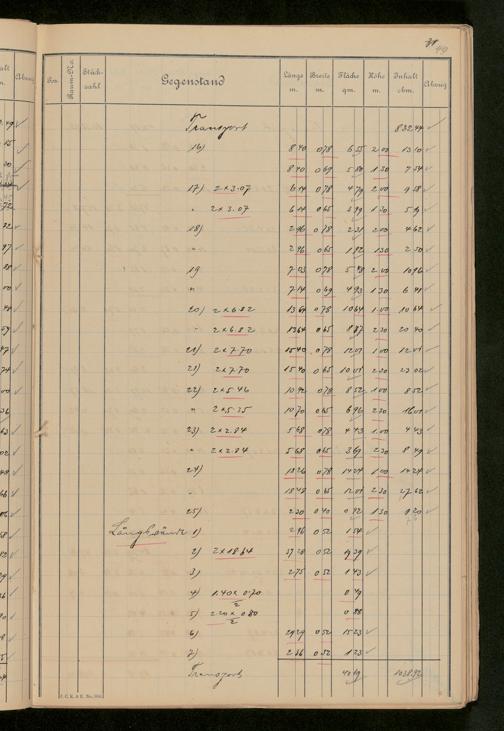 49
Pos. Raum-No. Stückzahl Gegenstand Länge m. Breite m. Fläche qm. Höhe m. Inhalt cbm. Abzug
Transport 832,44
16) 8.40 0.78 6.55 2.00 13.10
8.40 0.69 5.80 1.30 7.54
17) 2 x 3.07 6.14 0.78 4.79 2.00 9.58
" 2 x 3.07 6.14 0.65 3.99 1.30 5.19
18) 2.96 0.78 2.31 2.00 4.62
" 2.96 0.65 1.92 1.30 2.50
19 7.03 0.78 5.48 2.00 10.96
" 7.14 0.69 4.93 1.30 6.41
20) 2 x 6.82 13.64 0.78 10.64 1.00 10.64
" 2 x 6.82 13.64 0.65 8.87 2.30 20.40
21) 2 x 7.70 15.40 0.78 12.01 1.00 12.01
21) 2 x 7.70 15.40 0.65 10.01 2.30 23.02
22) 2 x 5.46 10.92 0.78 8.52 1.00 8.52
" 2 x 5.35 10.70 0.65 6.96 2.30 16.01
23) 2 x 2.84 5.68 0.78 4.43 1.00 4.43
" 2 x 2.84 5.68 0.65 3.69 2.30 8.49
24) 18.26 0.78 14.24 1.00 14.24
" 18.48 0.65 12.01 2.30 27.62
25) 2.30 0.40 0.92 1.30
1) 2.96 0.52 1.54
2) 2 x 18.64 37.28 0.52 19.39
3) 2.75 0.52 1.43
4) 1.40 x 0.70 / 2 0.49
5) 2.20 x 0.80 / 2 0.88
6) 29.29 0.52 15.23
7) 2.36 0.52 1.23
Transport 40.19 1038.92